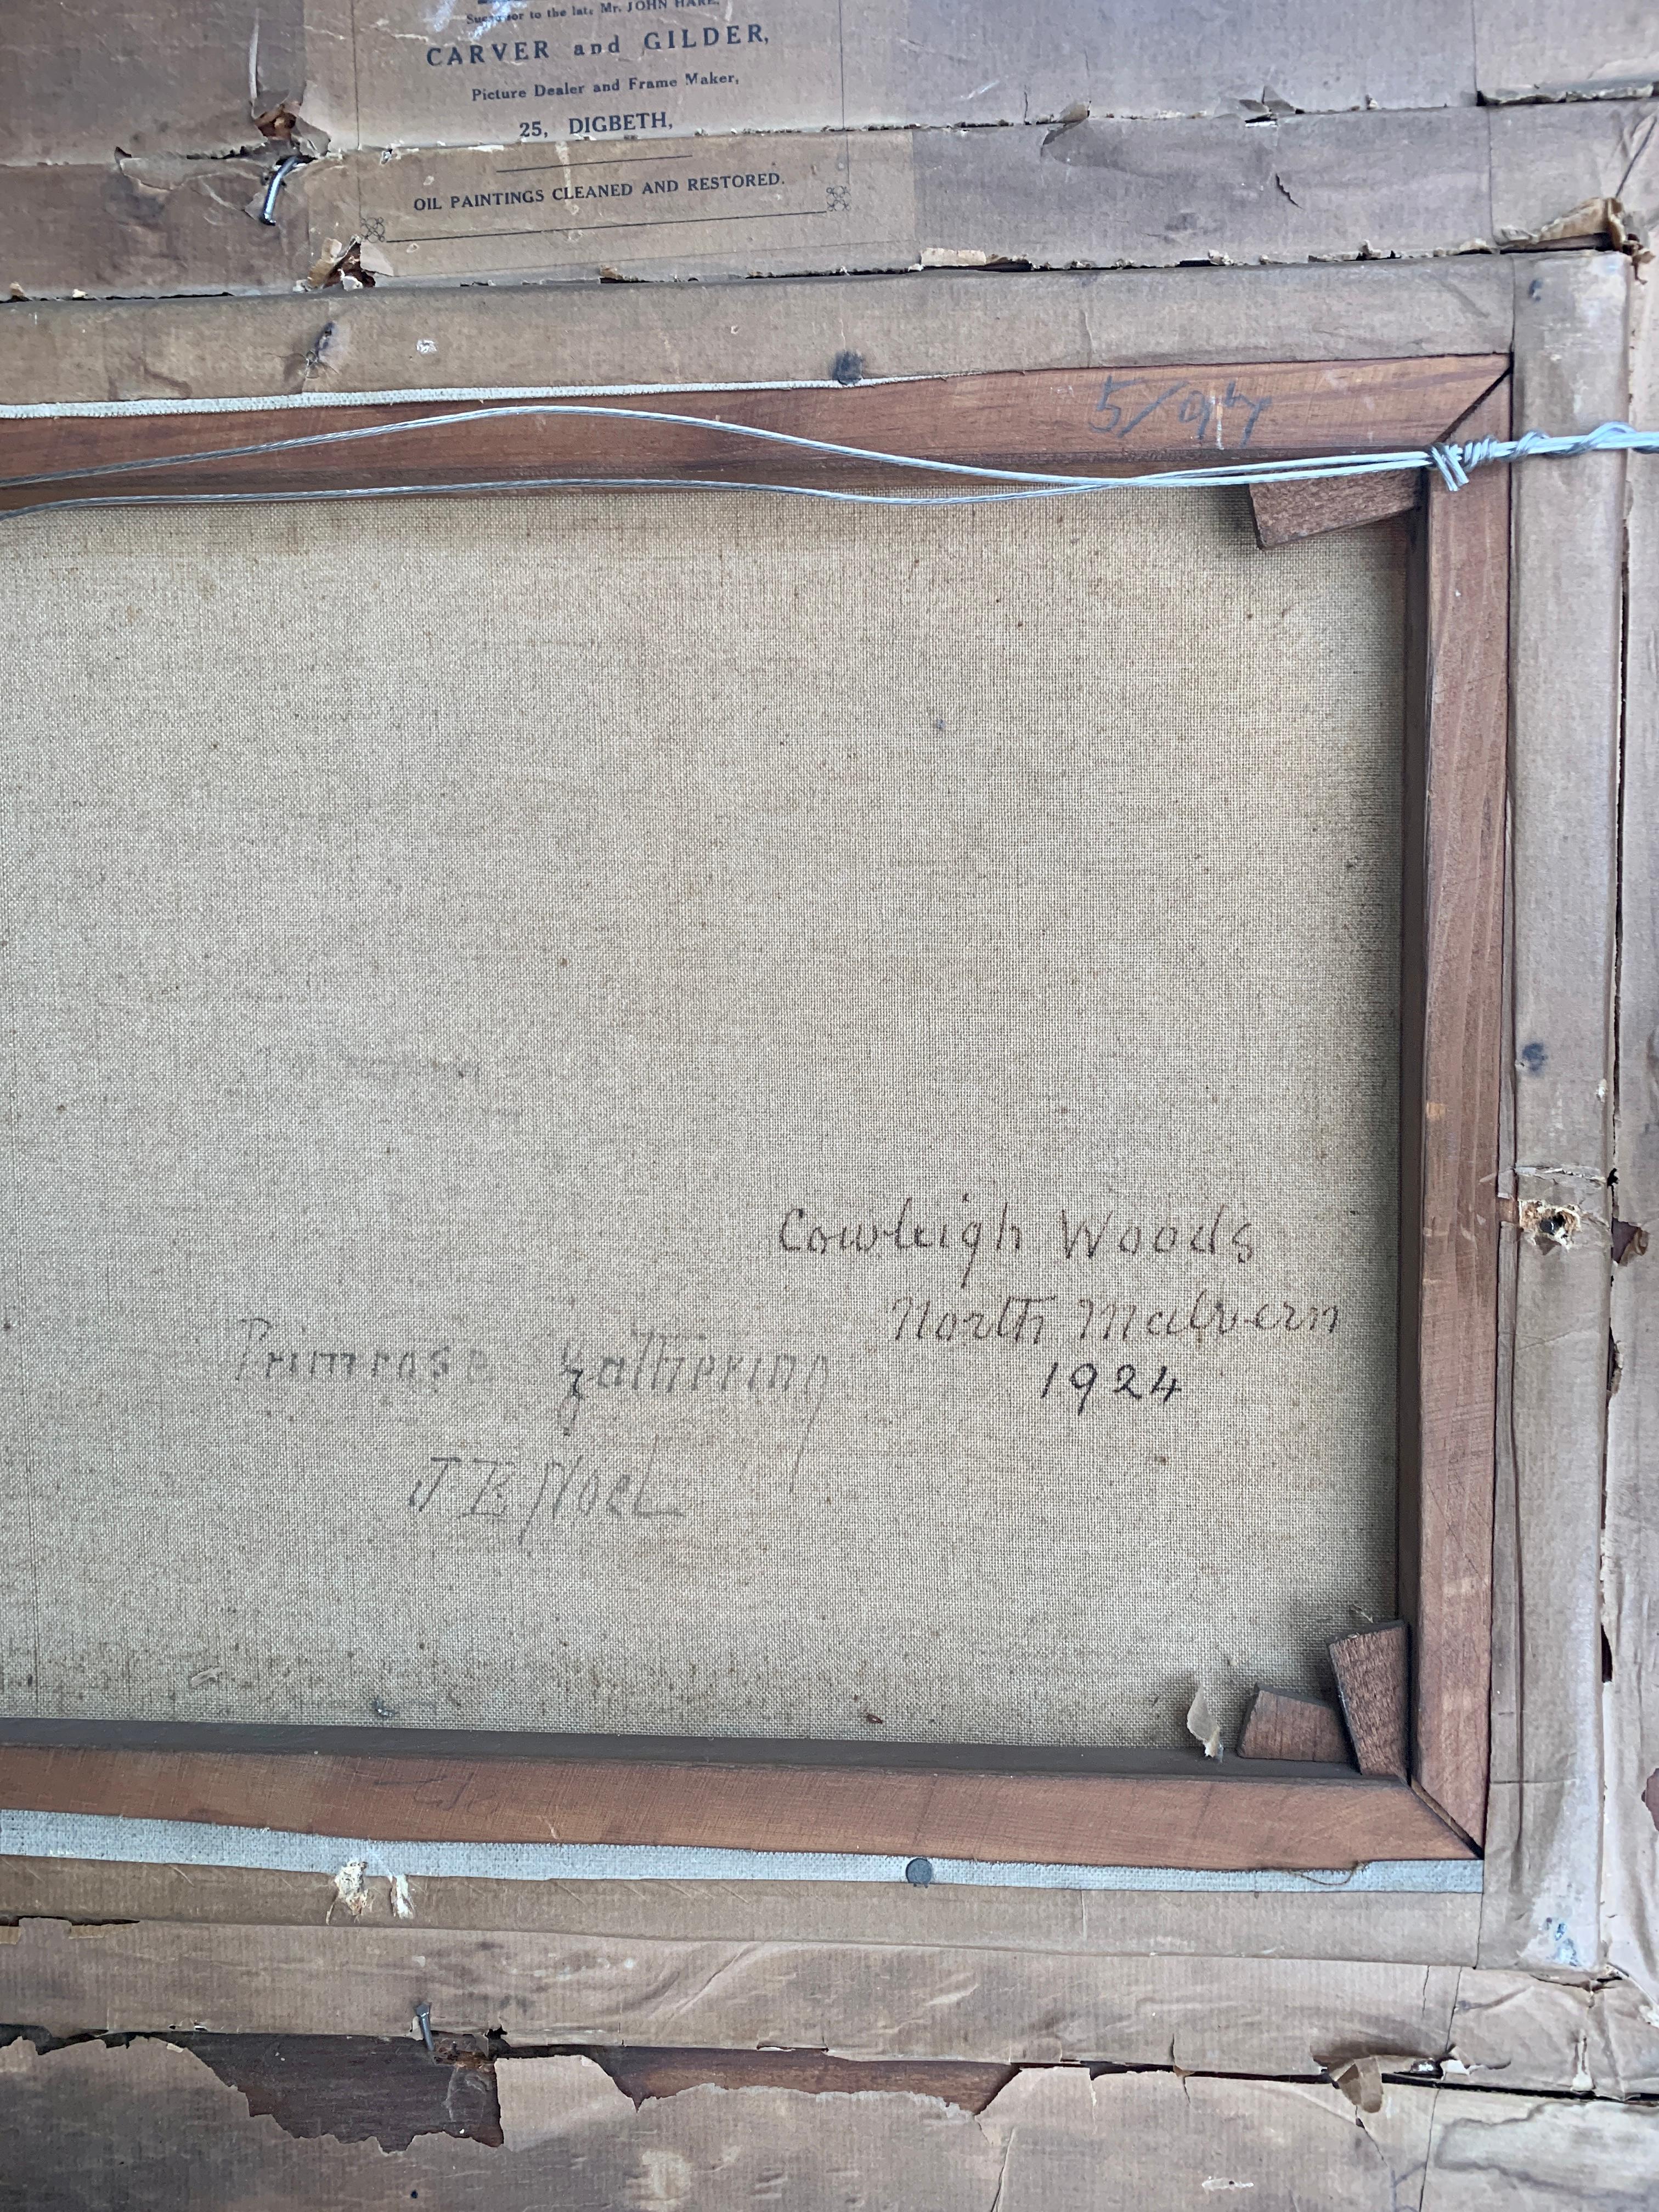 Successor to the late Mr. JOHN HARE,
CARVER and GILDER,
Picture Dealer and Frame Maker,
25, DIGBETH,
OIL PAINTINGS CLEANED AND RESTORED.
Cowleigh Woods
North Malvern
1924
Primrose Gathering
J. B. Noel